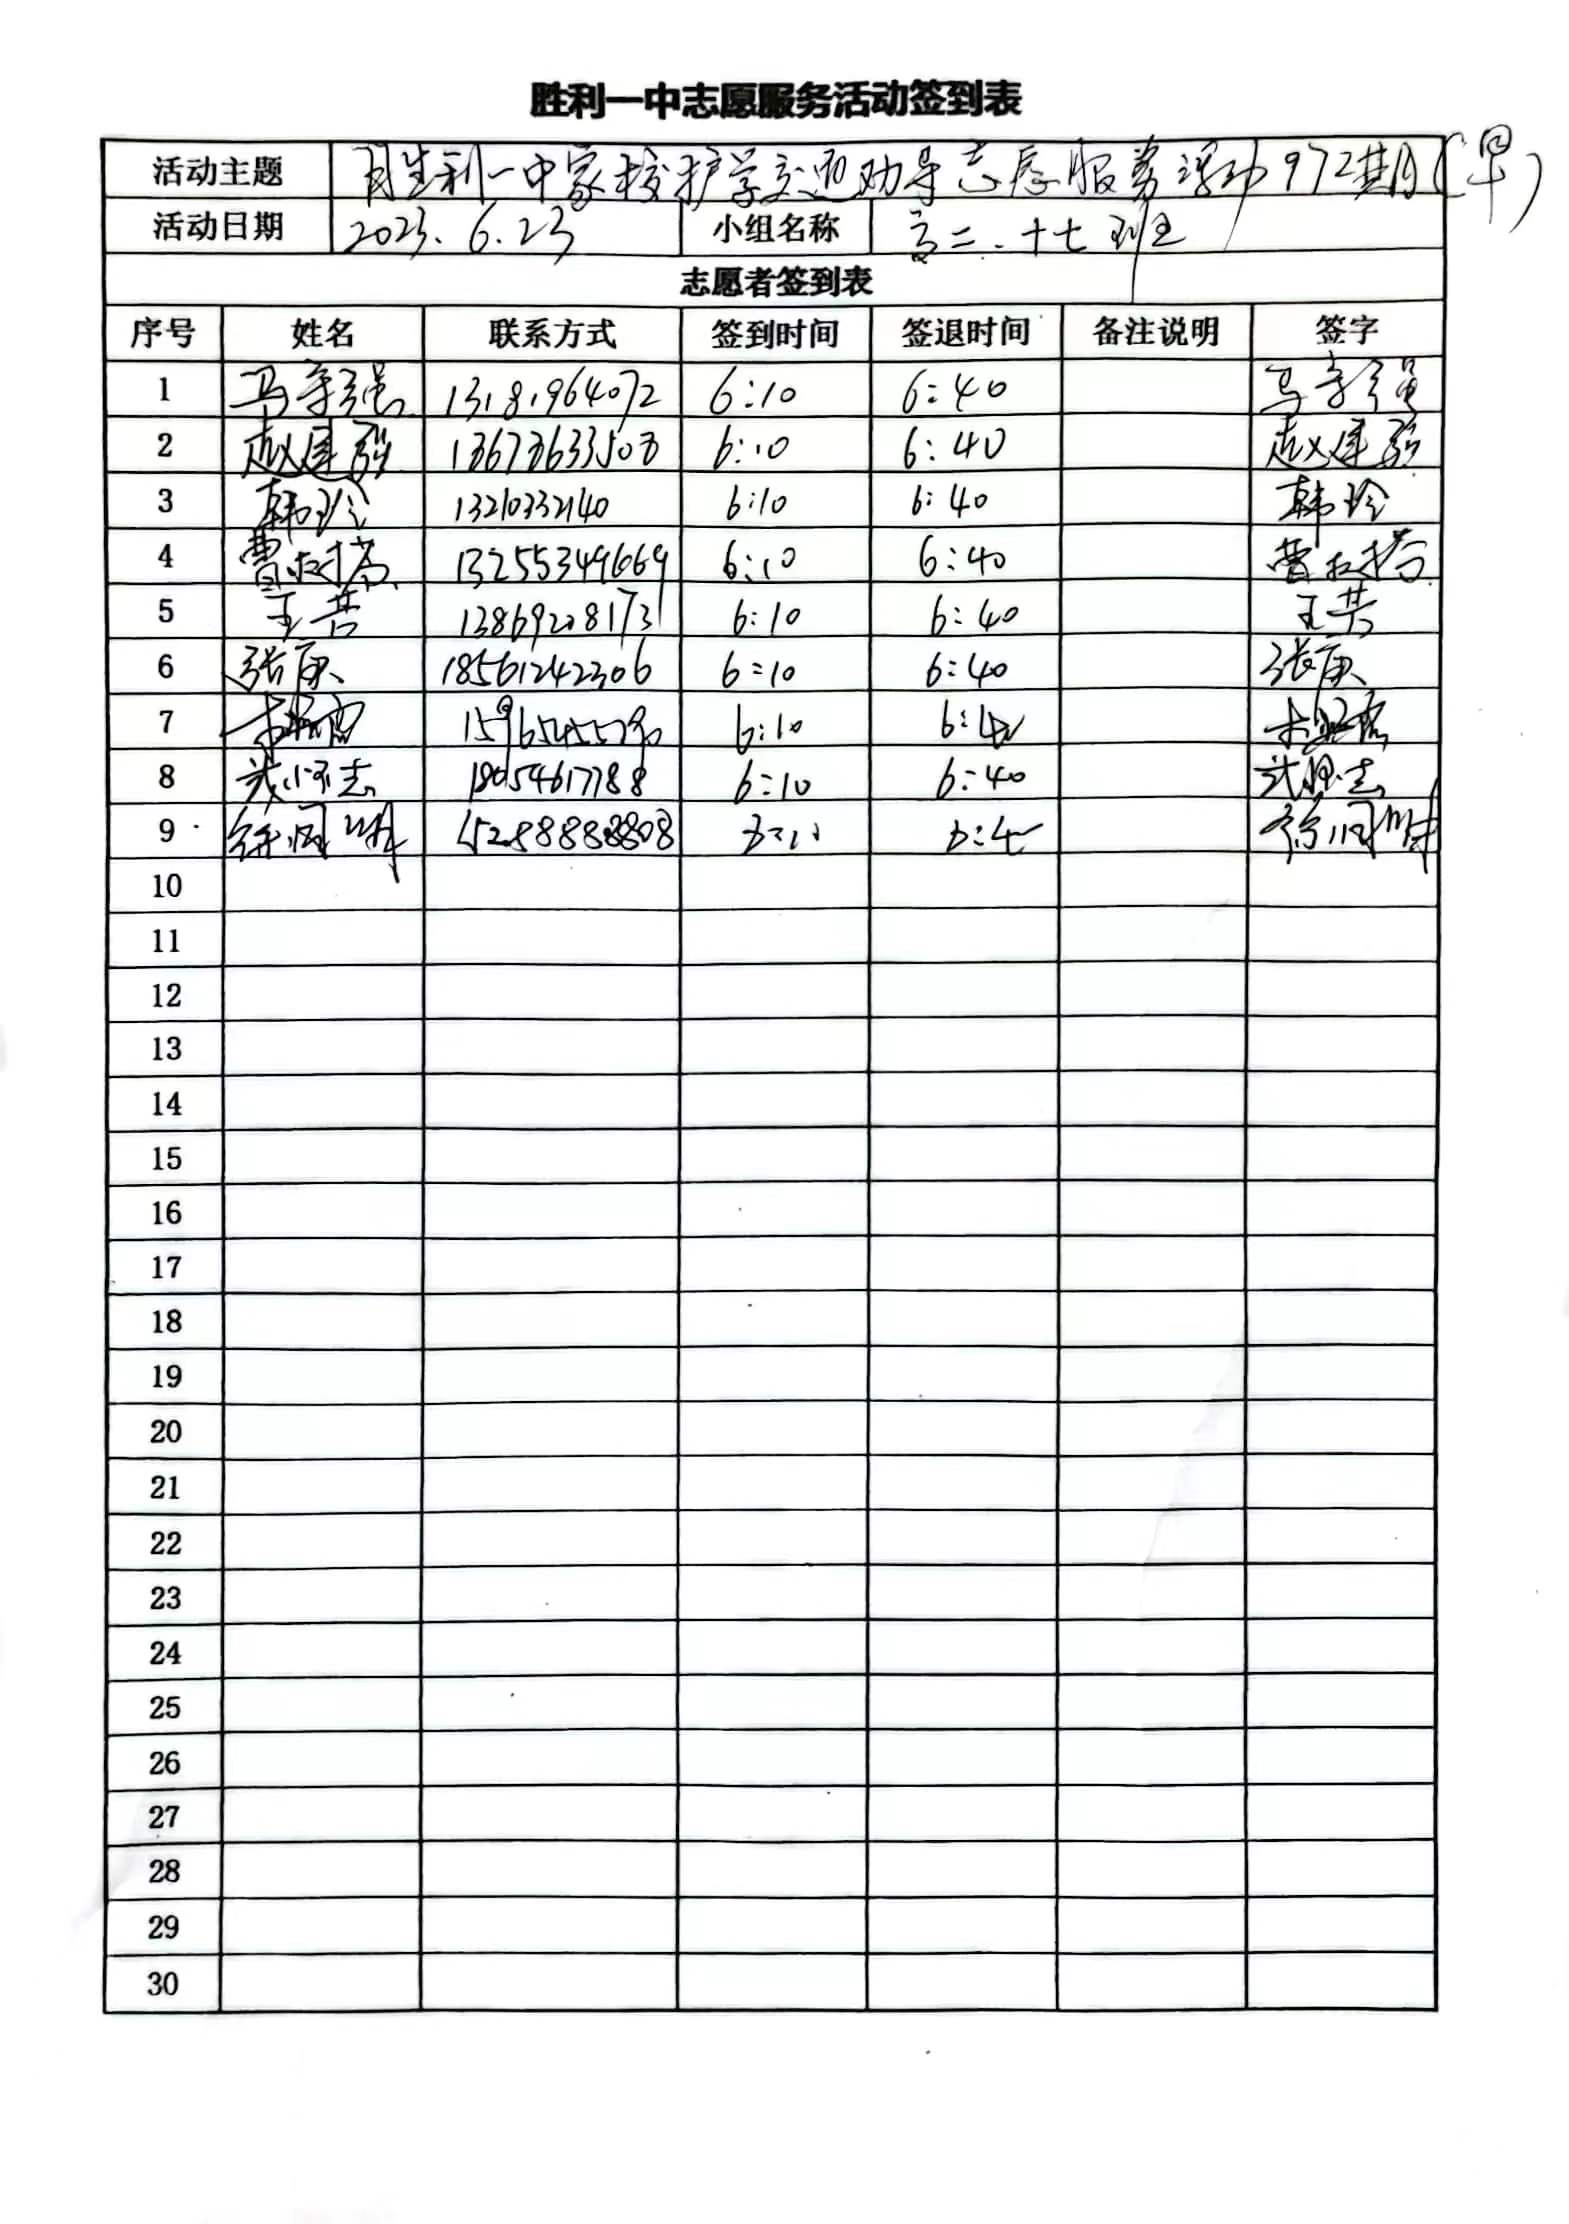 胜利一中志愿服务活动签到表
活动主题 胜利一中家校护学交通劝导志愿服务活动972期(早)
活动日期 2023.6.23 小组名称 高二.十七班
志愿者签到表
序号 姓名 联系方式 签到时间 签退时间 备注说明 签字
1 马守强 13181964072 6:10 6:40 马守强
2 赵建强 6:10 6:40 赵建强
3 韩玲 13210332140 6:10 6:40 韩玲
4 曹 13255349669 6:10 6:40 曹
5 王 13869208173 6:10 6:40 王
6 张 18561242306 6:10 6:40 张
7 6:10 6:40
8 志 18054617788 6:10 6:40 志
9 徐 徐
10
11
12
13
14
15
16
17
18
19
20
21
22
23
24
25
26
27
28
29
30